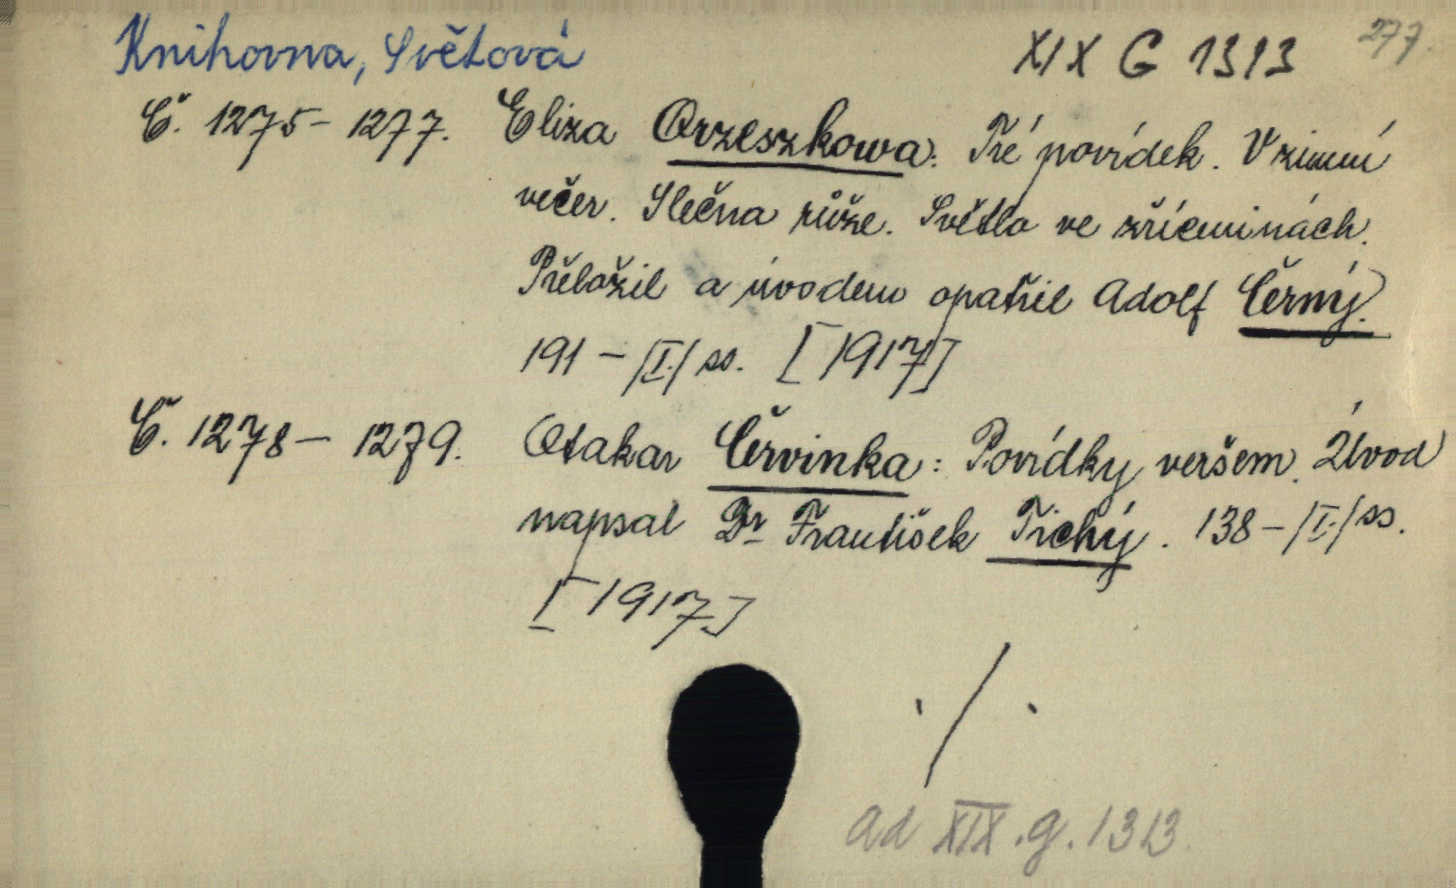 Knihovna, Světová XIX G 1313 277.
Č. 1275 – 1277. Eliza Orzeszkowa: Tré povídek. V zimní
večer. Slečna růže. Světlo ve zříceninách.
Přeložil a úvodem opatřil Adolf Černý.
191 – /I./ ss. [1917]
Č. 1278 – 1279. Otakar Červinka: Povídky veršem. Úvod
napsal Dr František Tichý. 138 – /I./ ss.
[1917]
./.
ad XIX.g.1313.